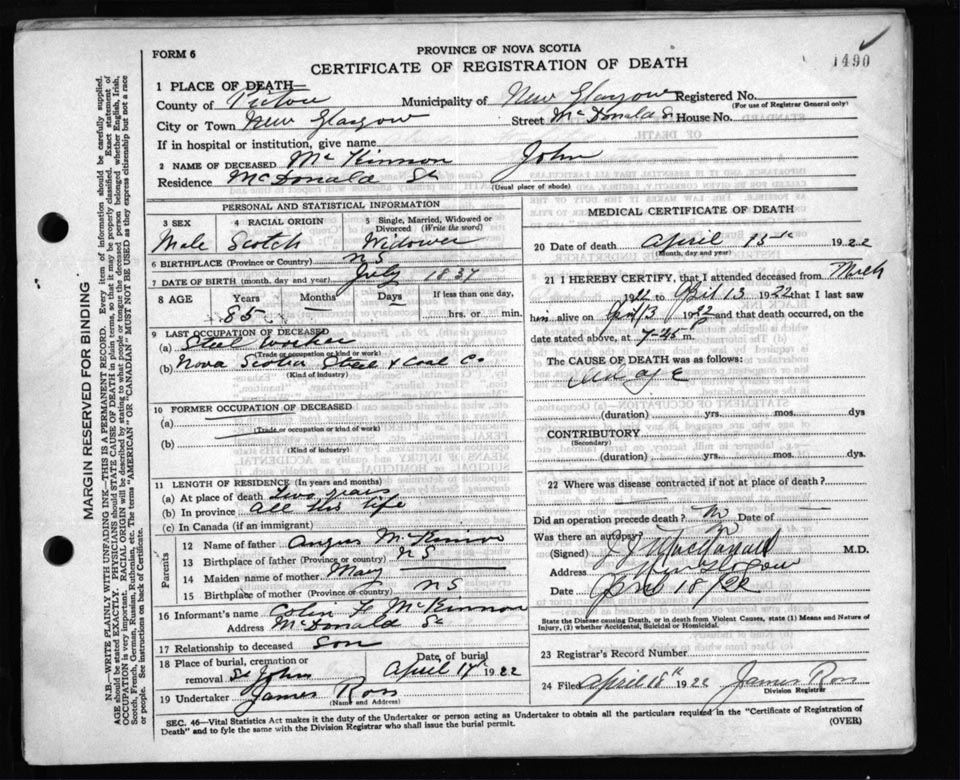 FORM 6
PROVINCE OF NOVA SCOTIA
CERTIFICATE OF REGISTRATION OF DEATH
1490
1 PLACE OF DEATH—
County of Pictou Municipality of New Glasgow Registered No.
(For use of Registrar General only)
City or Town New Glasgow Street McDonald St House No.
If in hospital or institution, give name
2 NAME OF DECEASED McKinnon John
Residence McDonald St
(Usual place of abode)
PERSONAL AND STATISTICAL INFORMATION
3 SEX 4 RACIAL ORIGIN 5 Single, Married, Widowed or Divorced (Write the word)
Male Scotch Widower
6 BIRTHPLACE (Province or Country) N S
7 DATE OF BIRTH (month, day and year) July 1837
8 AGE Years Months Days If less than one day,
85 hrs. or min.
9 LAST OCCUPATION OF DECEASED
(a) Steel Worker
(Trade or occupation or kind of work)
(b) Nova Scotia Steel & Coal Co
(Kind of industry)
10 FORMER OCCUPATION OF DECEASED
(a)
(Trade or occupation or kind of work)
(b)
(Kind of industry)
11 LENGTH OF RESIDENCE (In years and months)
(a) At place of death two years
(b) In province all his life
(c) In Canada (if an immigrant)
Parents
12 Name of father Angus McKinnon
13 Birthplace of father (Province or country) N S
14 Maiden name of mother Mary
15 Birthplace of mother (Province or country) N S
16 Informant's name Colin F McKinnon
Address McDonald St
17 Relationship to deceased Son
18 Place of burial, cremation or removal St John Date of burial April 17th 1922
19 Undertaker James Ross
(Name and Address)
MEDICAL CERTIFICATE OF DEATH
20 Date of death April 13th 1922
(Month, day and year)
21 I HEREBY CERTIFY, that I attended deceased from March
1922 to April 13 1922 that I last saw
him alive on April 13 1922 and that death occurred, on the
date stated above, at 7-45 m.
The CAUSE OF DEATH was as follows:
Old age
(duration) yrs. mos. dys
CONTRIBUTORY
(Secondary)
(duration) yrs. mos. dys.
22 Where was disease contracted if not at place of death?
Did an operation precede death? No Date of
Was there an autopsy?
(Signed) MacDonald M.D.
Address New Glasgow
Date April 18/22
State the Disease causing Death, or in death from Violent Causes, state (1) Means and Nature of
Injury, (2) whether Accidental, Suicidal or Homicidal.
23 Registrar's Record Number
24 Filed April 18th 1922 James Ross
Division Registrar
SEC. 46—Vital Statistics Act makes it the duty of the Undertaker or person acting as Undertaker to obtain all the particulars required in the "Certificate of Registration of
Death" and to fyle the same with the Division Registrar who shall issue the burial permit.
(OVER)
MARGIN RESERVED FOR BINDING
N.B.—WRITE PLAINLY WITH UNFADING INK—THIS IS A PERMANENT RECORD. Every item of information should be carefully supplied.
AGE should be stated EXACTLY. PHYSICIANS should STATE CAUSE OF DEATH in plain terms, so that it may be properly classified. Exact statement of
OCCUPATION is very important. RACIAL ORIGIN will be described by stating to what people or tongue the deceased person belonged whether English, Irish,
Scotch, French, German, Russian, Ruthenian, etc. The terms "AMERICAN" OR "CANADIAN" MUST NOT BE USED as they express citizenship but not a race
or people. See instructions on back of Certificate.